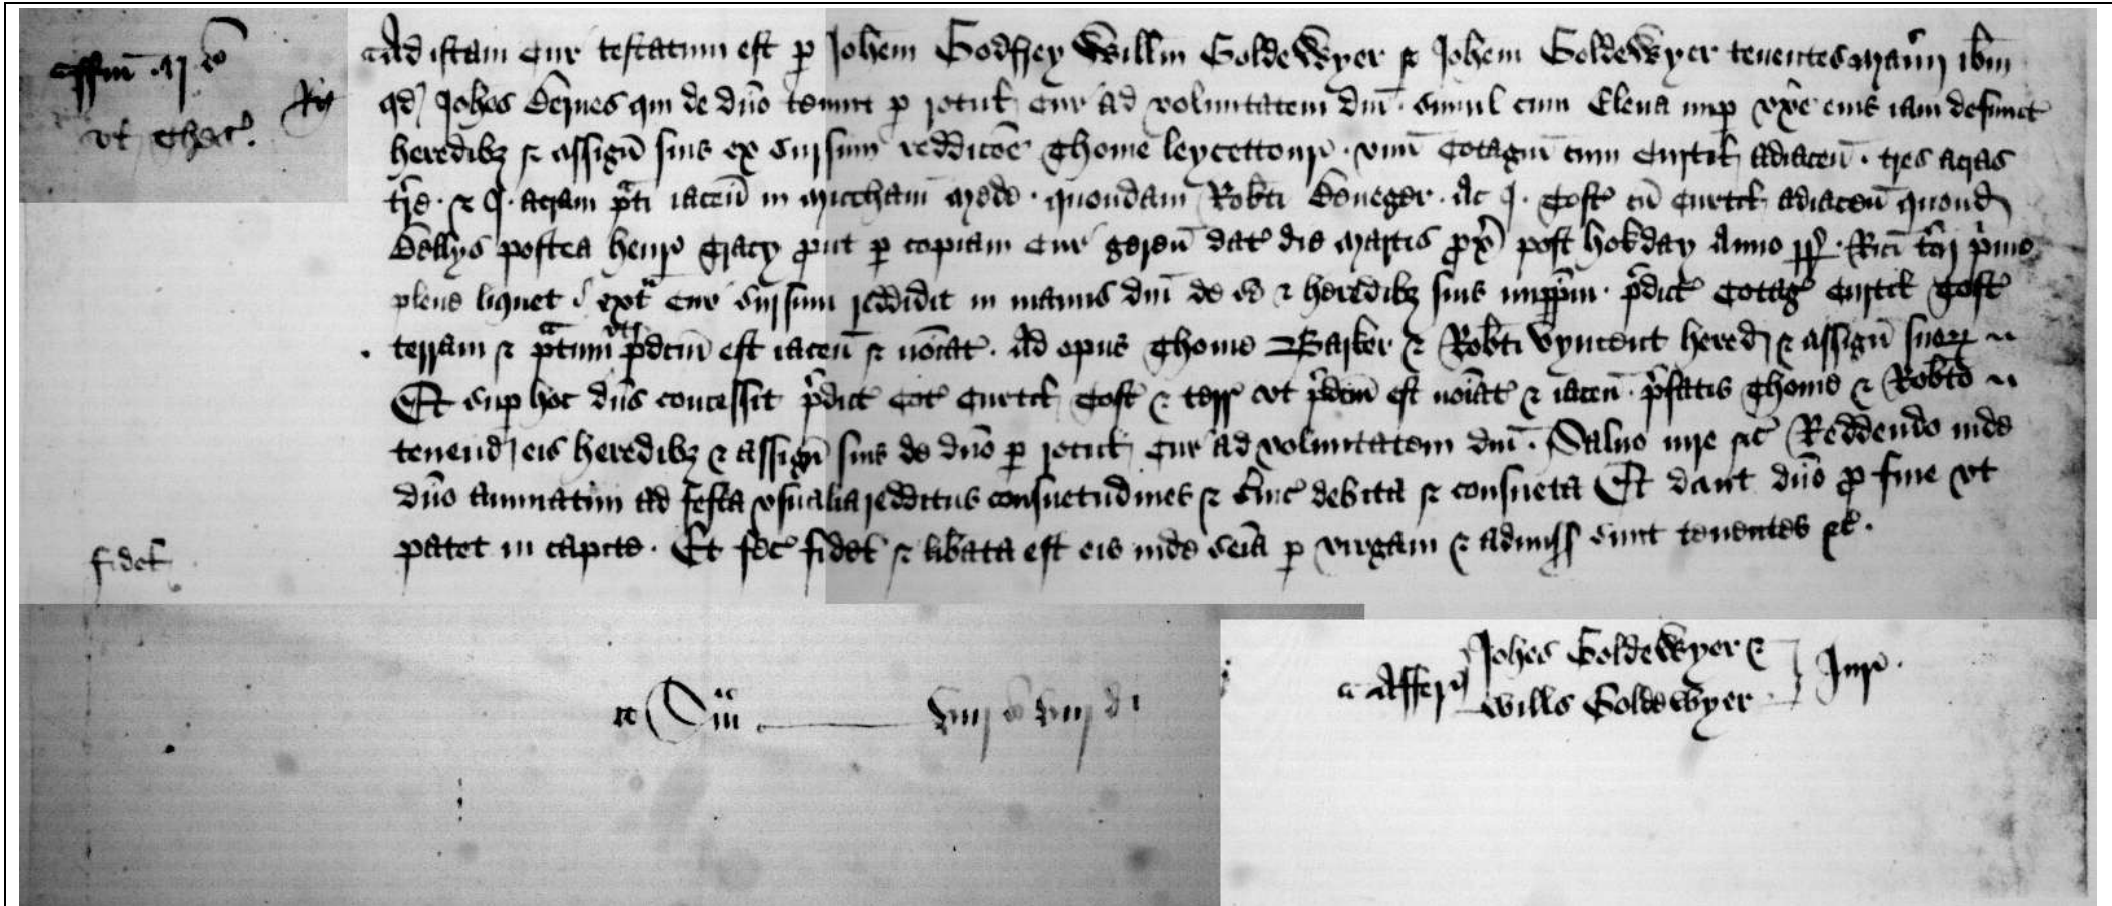 ffin ij s
vt Thac
Ad istam Cur testatum est p Johem Godffrey Willm GoldeWyer & Johem GoldeWyer tenentes Man ibm
qd Johes Bernes qui de dno tenuit p rotul Cur ad voluntatem dni simul cum Elena nup vxe eius iam defunct
heredibz & assign suis ex sursum reddicoe Thome leycettour vnu Cotagiu cum Curtil adiacen tres acras
tre & j acram pti iacen in Mede quondam Robti Ac j Toft cu Curtil adiacen quond
postea henr Tracy put p copiam Cur geren dat die Martis px post hokday Anno RR Rici tcij pimo
plene liquet extr Cur sursum reddidit in manus dni de se & heredibz suis impptm pdict Cotag Curtil Toft
terram & ptum vt pdcm est iacen & noiat Ad opus Thome Barker & Robti vyncent hered & assign suor
Et sup hoc dns concessit pdict Cot Curtil Toft & terr vt pdcm est noiat & iacen pfatis Thome & Robto
tenend eis heredibz & assign suis de dno p rotul Cur ad voluntatem dni Saluo iure &c Reddendo inde
dno annuatim ad festa vsualia redditus consuetudines & suic debita & consueta Et dant dno p fine vt
patet in capite Et fec fidel & libata est eis inde seia p virgam & admiss sunt tenentes &c
fidel
Affer Johes GoldeWyer &
Wills GoldeWyer Jur
Sm